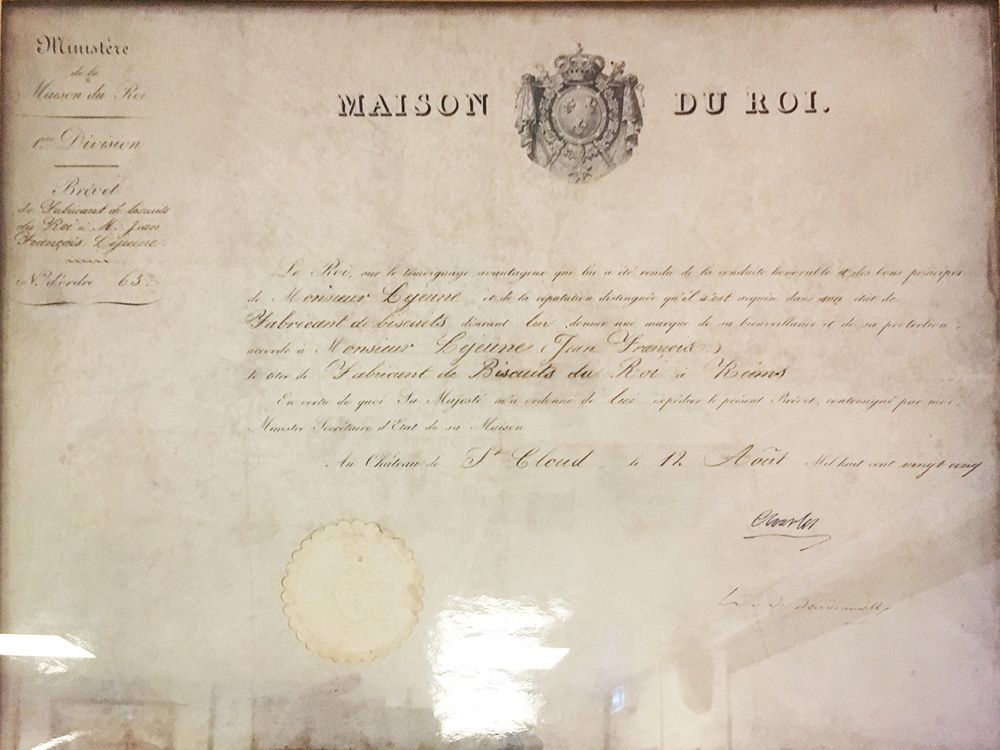 Ministère
de la
Maison du Roi
1ère Division
Brévet
de Fabricant de biscuits
du Roi à M. Jean
François Lejeune.
N.º d'ordre 63.
MAISON DU ROI.
Le Roi, sur le témoignage avantageux qui lui a été rendu de la conduite honorable et des bons principes
de Monsieur Lejeune et de la réputation distinguée qu'il s'est acquise dans son état de
Fabricant de biscuits, désirant lui donner une marque de sa bienveillance et de sa protection,
accorde à Monsieur Lejeune (Jean François)
le titre de Fabricant de Biscuits du Roi à Reims
En vertu de quoi Sa Majesté m'a ordonné de lui expédier le présent Brévet, contresigné par moi,
Ministre Secrétaire d'Etat de sa Maison
Au Château de St Cloud le 12 Août Mil huit cent vingt cinq
Charles